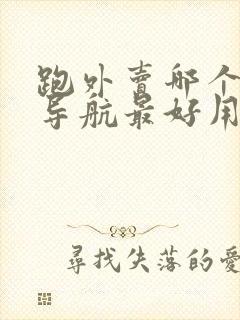 跑外賣哪个
导航最好用
尋找失落的愛